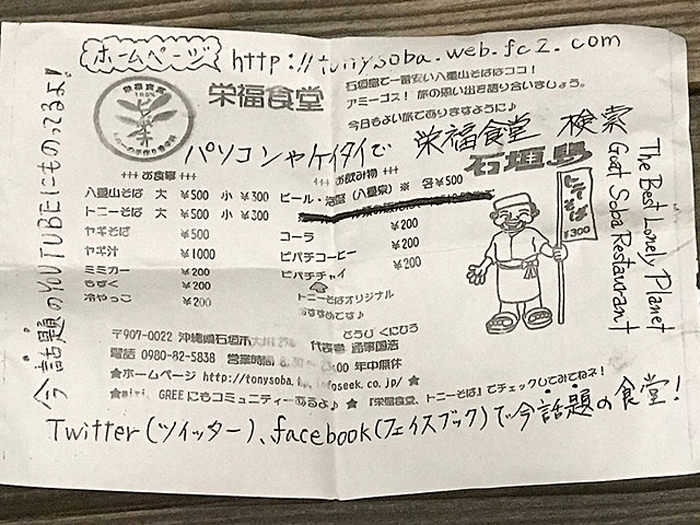 ホームページ http://tonysoba.web.fc2.com
石垣島で一番安い八重山そばはココ!
アミーゴス! 旅の思い出を語り合いましょう。
今日もよい旅でありますように♪
栄福食堂
パソコンやケイタイで 栄福食堂 検索
石垣島
+++ お食事 +++
八重山そば 大 ¥500 小 ¥300
トニーそば 大 ¥500 小 ¥300
ヤギそば ¥500
ヤギ汁 ¥1000
ミミガー ¥200
もずく ¥200
冷やっこ ¥200
+++ お飲み物 +++
ビール・泡盛(八重泉)※ 各¥500
コーラ ¥200
ピパチコーヒー ¥200
ピパチチャイ ¥200
トニーそばオリジナル
おすすめです♪
トニそば
¥300
The Best Lonely Planet
Goat Soba Restaurant
今話題のYOUTUBEにものってるよ!
〒907-0022 沖縄県石垣市大川
代表者
電話 0980-82-5838 営業時間 8:30~23:00 年中無休
★ホームページ http://tonysoba.hp.infoseek.co.jp/ ★
★mixi、GREEにもコミュニティーあるよ♪★ ★『栄福食堂、トニーそば』でチェックしてみてネ!
Twitter(ツイッター)、facebook(フェイスブック)で今話題の食堂!